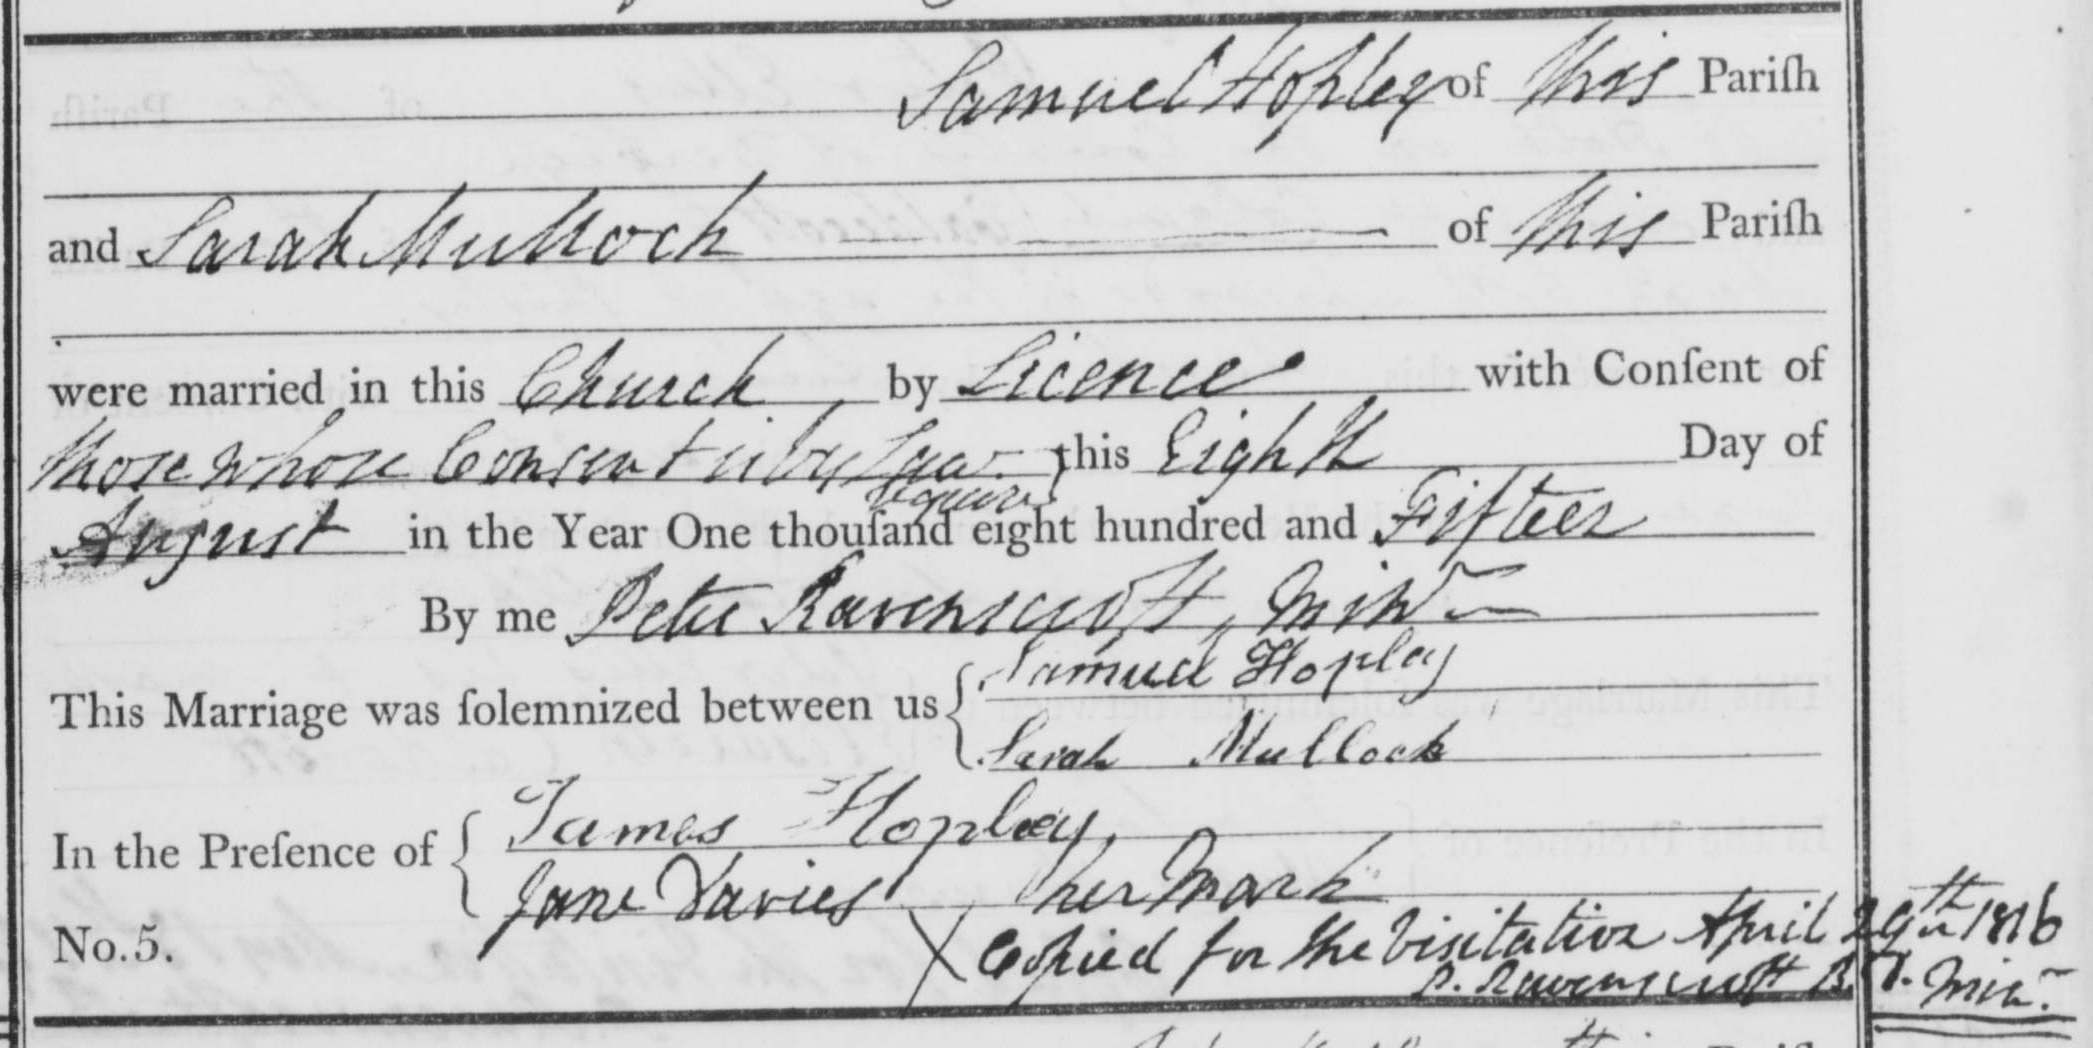 Samuel Hopley of this Pariſh
and Sarah Mullock of this Pariſh
were married in this Church by Licence with Conſent of
those whose Consent is by Law this Eighth Day of
require
August in the Year One thouſand eight hundred and Fifteen
By me Peter Ravenscroft, Minr
This Marriage was ſolemnized between us { Samuel Hopley
Sarah Mullock
In the Preſence of { James Hopley
Jane Davies her Mark
No. 5. X Copied for the Visitation April 29th 1816
P. Ravenscroft B.D. Minr.